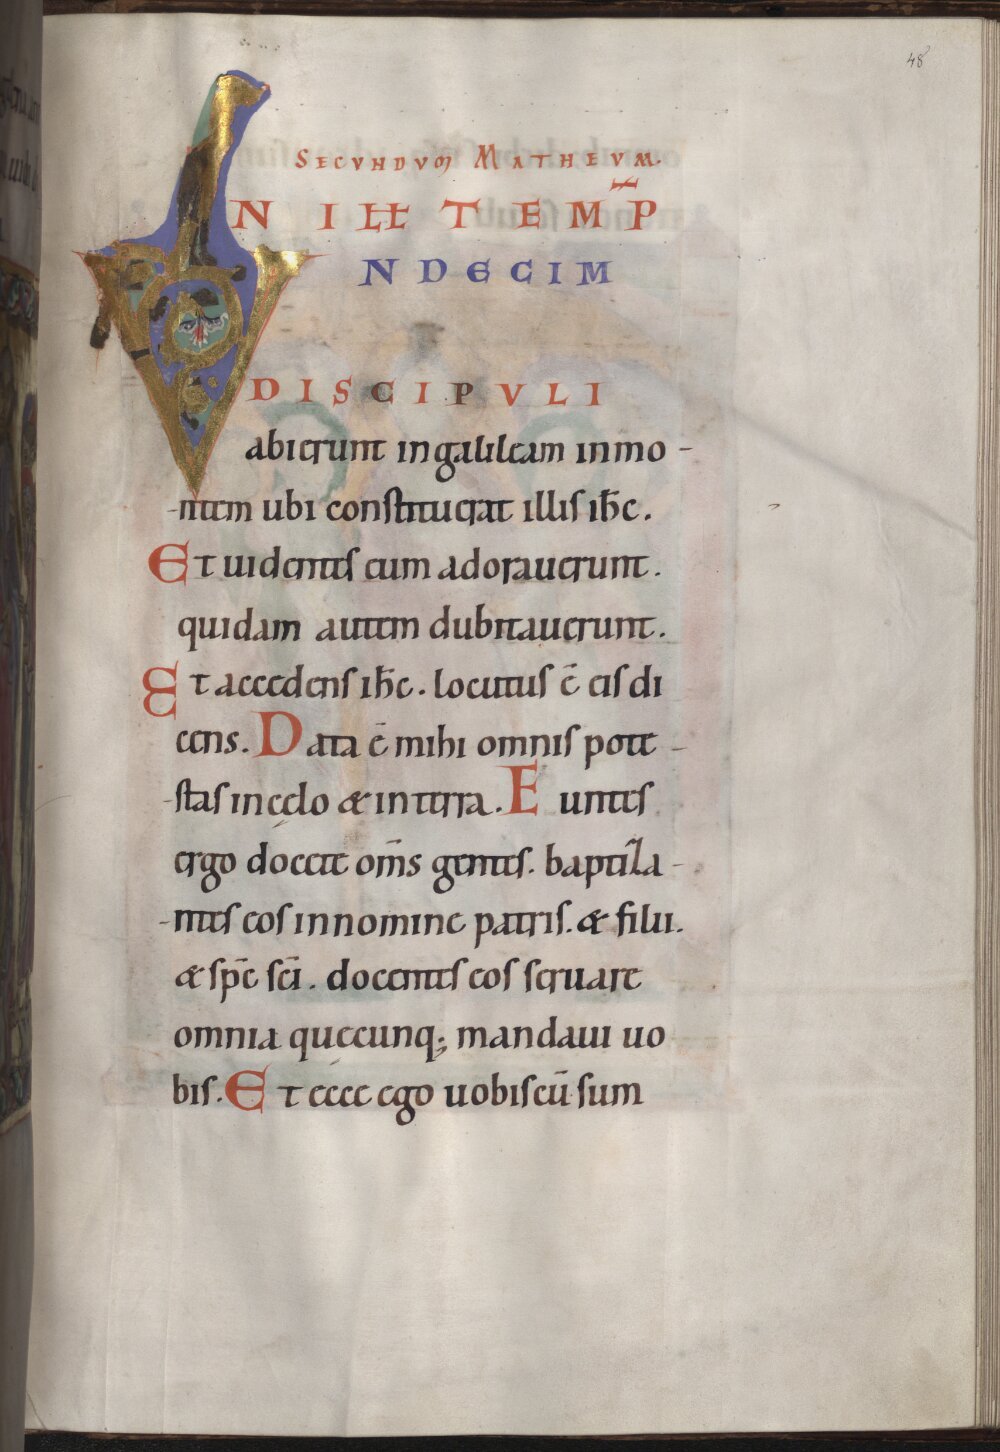 48
SECVNDVM MATHEVM.
IN ILŁ TEMP̄
VNDECIM
DISCIPVLI
abierunt in galileam in mo-
-ntem ubi constituerat illis ihc̄.
Et uidentes eum adorauerunt.
quidam autem dubitauerunt.
Et accedens ihc̄. locutus ē eis di
cens. Data ē mihi omnis pote-
-stas in cęlo & in terra. Euntes
ergo docete om̄s gentes. baptiza-
-ntes eos in nomine patris. & filii.
& sp̄c sc̄i. docentes eos seruare
omnia quęcunq; mandaui uo
bis. Et ecce ego uobiscū sum